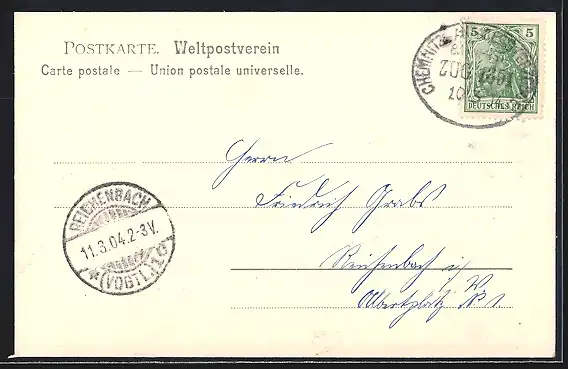 POSTKARTE. Weltpostverein
Carte postale — Union postale universelle.
CHEMNITZ
ZUG
10 3
5 5
DEUTSCHES REICH
Herrn
Friedrich Grabs
REICHENBACH
11.3.04.2-3V.
*(VOGTL.)1c
Reichenbach i/V
Albertplatz No 1